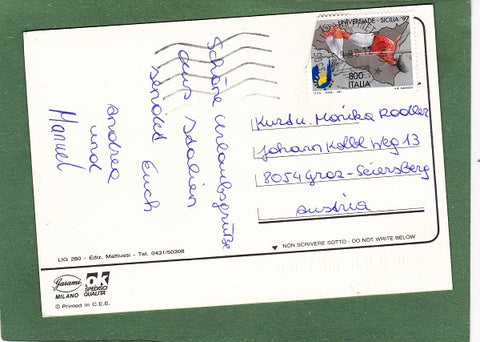 Schöne Urlaubsgrüße
aus Italien
sendet Euch
Andrea
und
Manuel
UNIVERSIADE - SICILIA '97
800
ITALIA
Kurt u. Monika Rodler
Johann Kölbl Weg 13
8054 Graz-Seiersberg
Austria
NON SCRIVERE SOTTO - DO NOT WRITE BELOW
LIG 280 - Ediz. Mattiussi - Tel. 0431/50308
Garami
MILANO
OK
SPEDISCI
QUALITÀ
© Printed in C.E.E.